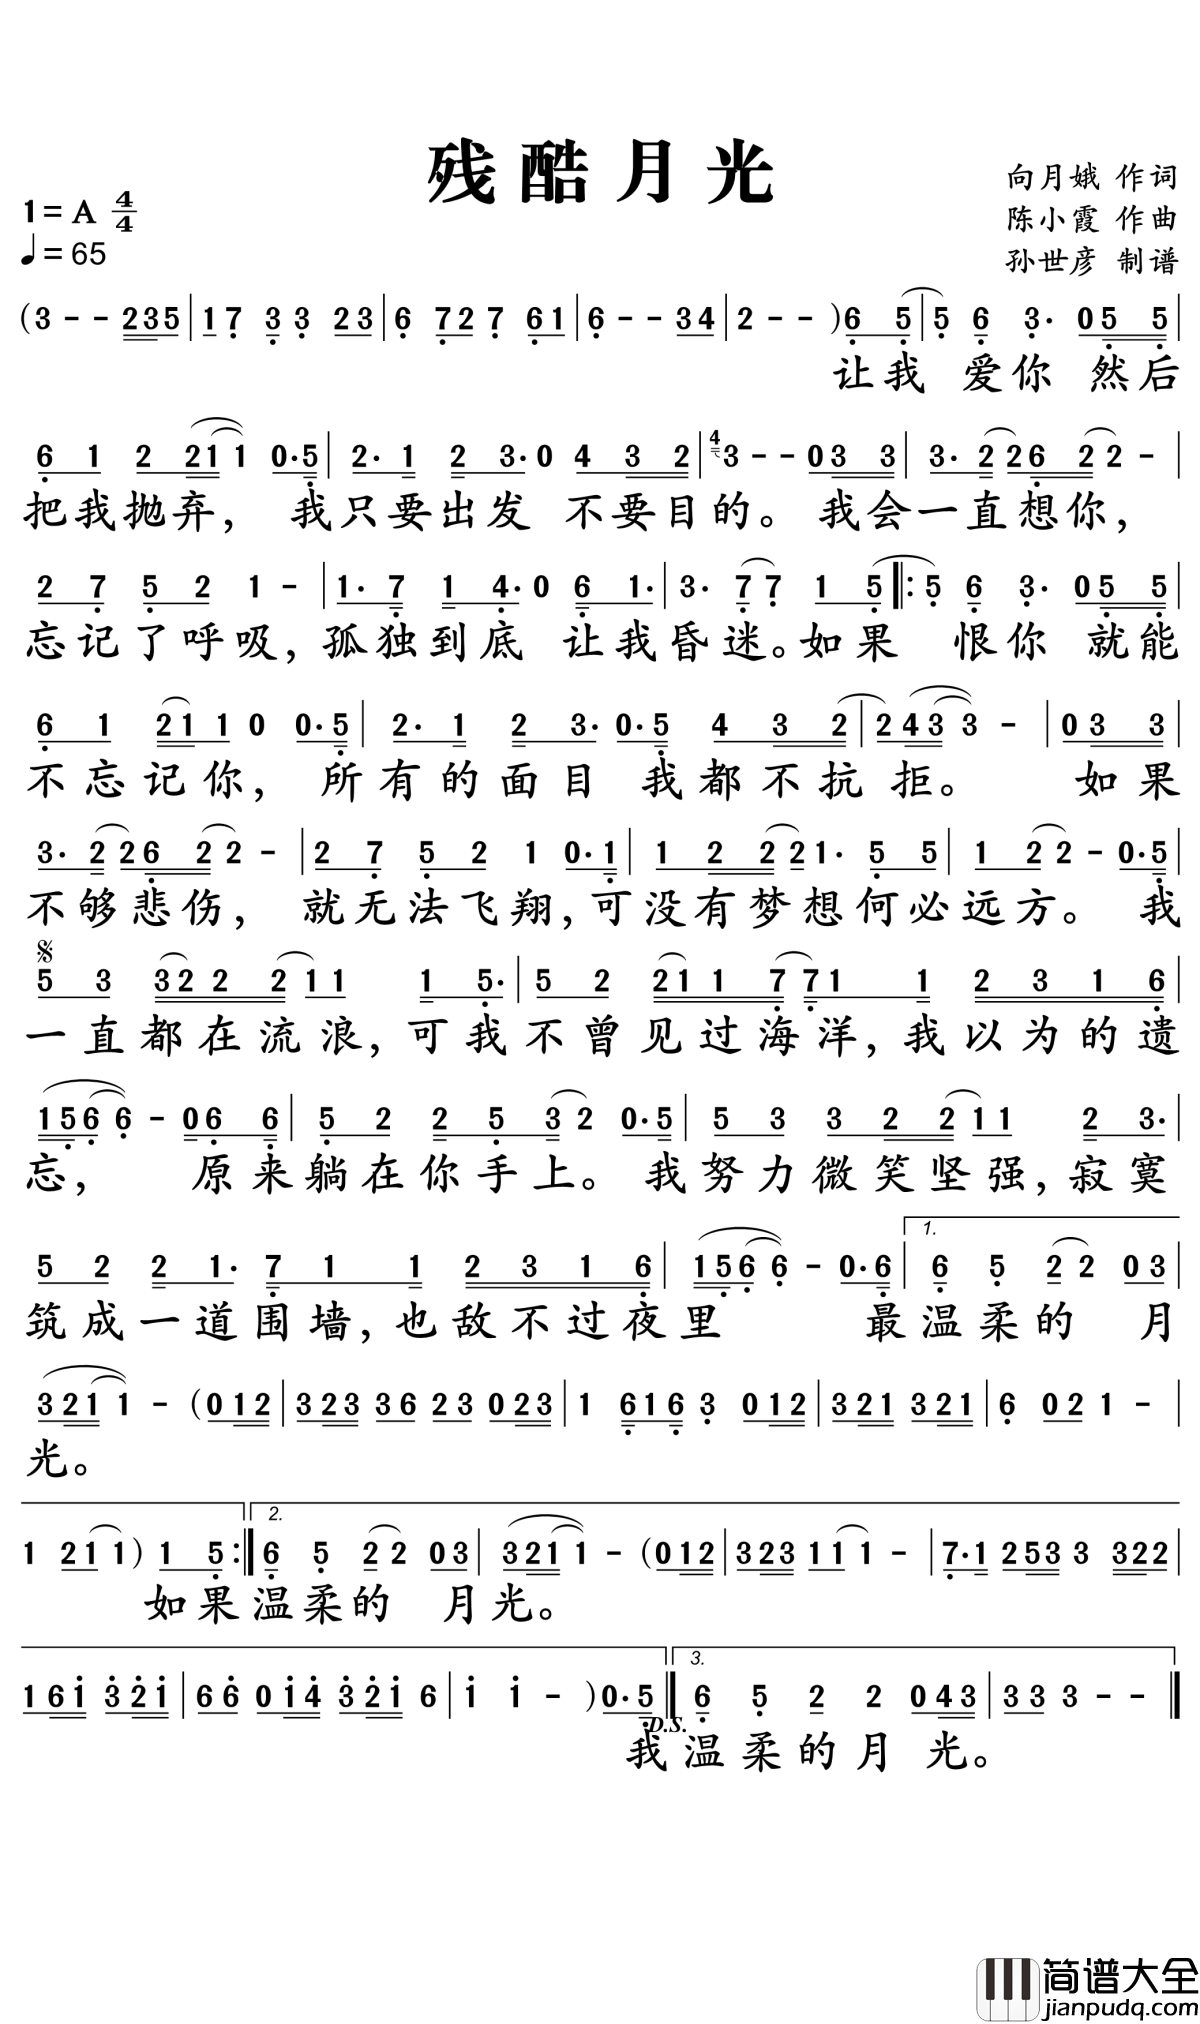 残酷月光
向月娥 作词
1=A 4/4
陈小霞 作曲
♩=65
孙世彦 制谱
(3 - - 235 | 17 33 23 | 6 727 61 | 6 - - 34 | 2 - - )6 5 | 5 6 3· 05 5 |
让我 爱你 然后
6 1 2 211 0·5 | 2· 1 2 3·0 4 3 2 | 4 3 - - 03 3 | 3· 226 22 - |
把我抛弃, 我只要出发 不要目的。 我会一直想你,
2 7 5 2 1 - | 1· 7 1 4·0 6 1· | 3· 77 1 5 ‖: 5 6 3· 05 5 |
忘记了呼吸, 孤独到底 让我昏迷。如果 恨你 就能
6 1 211 0 0·5 | 2· 1 2 3· 0·5 4 3 2 | 2433 - | 03 3 |
不忘记你, 所有的面目 我都不抗拒。 如果
3· 226 22 - | 2 7 5 2 1 0·1 | 1 2 221· 5 5 | 1 22 - 0·5 |
不够悲伤, 就无法飞翔,可没有梦想何必远方。 我
5 3 322 211 1 5· | 5 2 211 771 1 2 3 1 6 |
一直都在流浪,可我不曾见过海洋,我以为的遗
1566 - 06 6 | 5 2 2 5 32 0·5 | 5 3 3 2 211 2 3· |
忘, 原来躺在你手上。 我努力微笑坚强,寂寞
1.
5 2 2 1· 7 1 1 2 3 1 6 | 1566 - 0·6 | 6 5 22 03 |
筑成一道围墙,也敌不过夜里 最温柔的 月
3211 - (012 | 323 36 23 023 | 1 616 3 012 | 321 321 | 6 02 1 - |
光。
2.
1 211) 1 5 :‖ 6 5 22 03 | 3211 - (012 | 323 111 - | 7·1 253 3 322 |
如果温柔的 月光。
3.
161 321 | 66 014 321 6 | 1 1 - )0·5 ‖ 6 5 2 2 043 | 33 3 - - ‖
D.S.
我温柔的月 光。
简谱大全
jianpudq.com